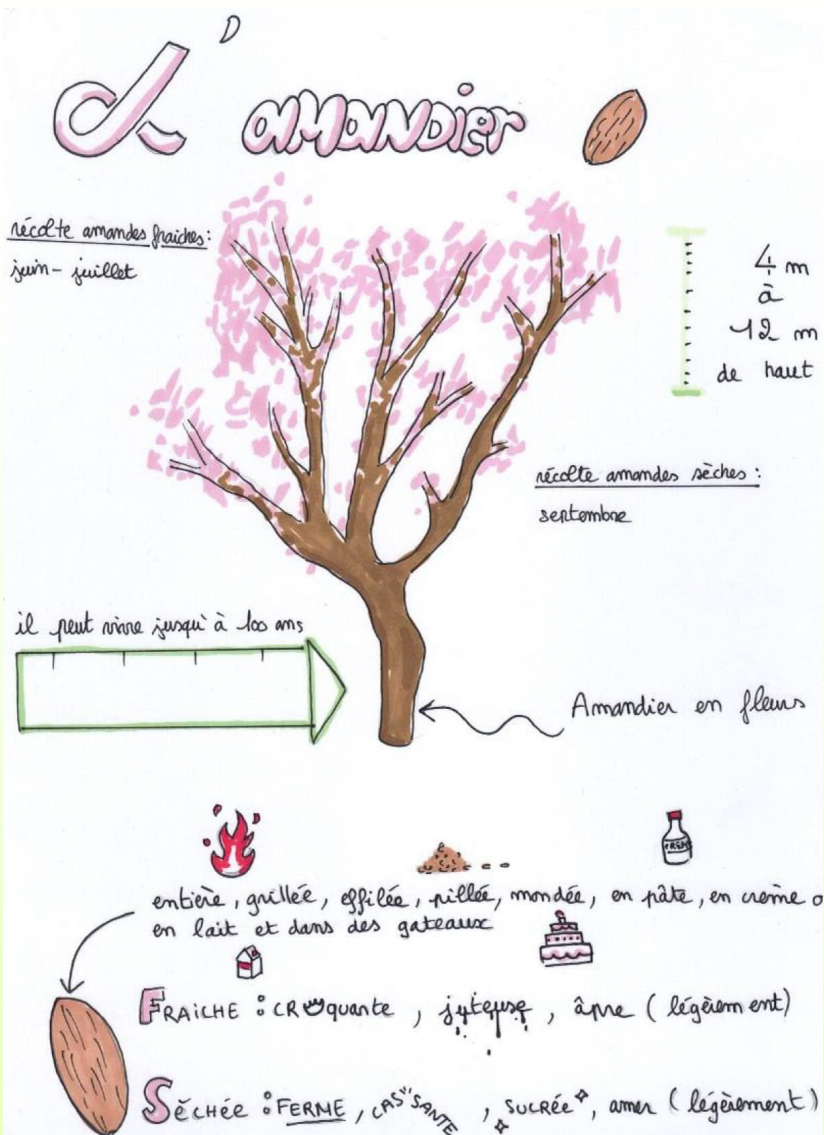 L' amandier
récolte amandes fraiches :
juin - juillet
4 m
à
12 m
de haut
récolte amandes sèches :
septembre
il peut vivre jusqu'à 100 ans
Amandier en fleurs
CRÈME
entière, grillée, effilée, pillée, mondée, en pâte, en crème o
en lait et dans des gateaux
FRAICHE : CROquante, juteuse, âpre (légèrement)
SÉCHÉE : FERME, CASSANTE, SUCRÉE, amer (légèrement)